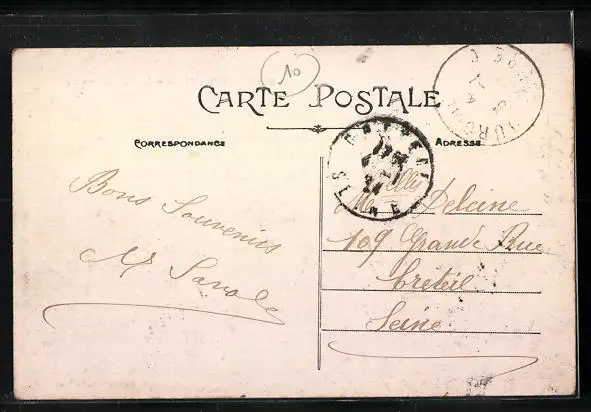 10
CARTE POSTALE
CORRESPONDANCE
ADRESSE
Bons Souvenirs
Melle Delcine
109 Grande Rue
Créteil
Seine